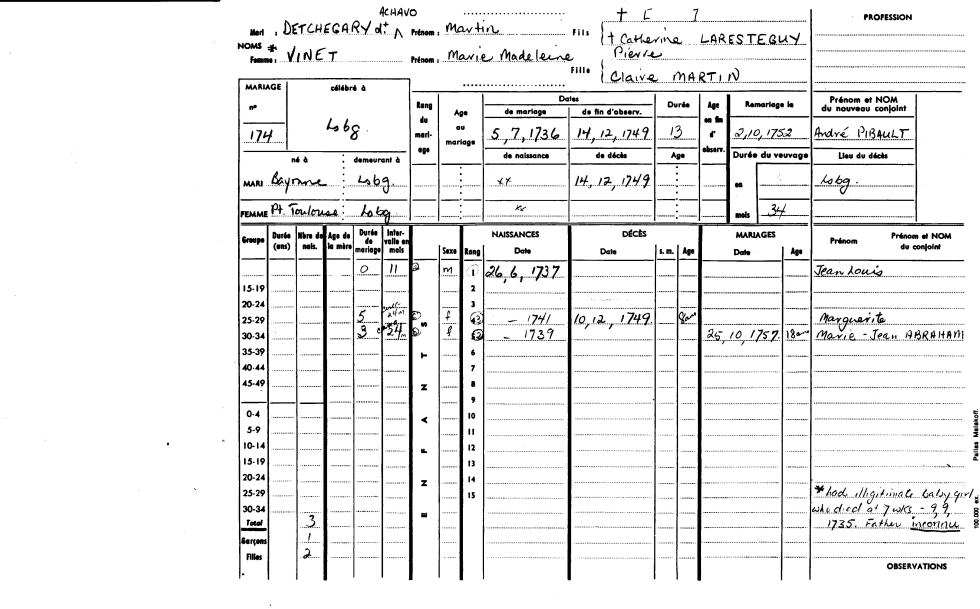 ACHAVO
Mari : DETCHEGARY dit Prénom : Martin Fils † [ ]
† Catherine LARESTEGUY
NOMS *
Femme : VINET Prénom : Marie Madeleine Fille Pierre
Claire MARTIN
PROFESSION
MARIAGE n° 174 célébré à Lsbg.
Rang du mariage
Age au mariage
Dates
de mariage 5, 7, 1736
de fin d'observ. 14, 12, 1749
Durée 13
Age en fin d'observ.
Remariage le 2, 10, 1752
Prénom et NOM du nouveau conjoint
André PIBAULT
né à demeurant à
de naissance de décès Age
Durée du veuvage
Lieu du décès
MARI Bayonne Lsbg. xx 14, 12, 1749 en Lsbg.
FEMME Pt. Toulouse Lsbg xx mois 34
Groupe Durée (ans) Nbre de nais. Age de la mère Durée de mariage Intervalle en mois
ENFANTS
Sexe Rang
NAISSANCES Date
DÉCÈS Date s. m. Age
MARIAGES Date Age
Prénom
Prénom et NOM du conjoint
0 11 m 1 26, 6, 1737 Jean Louis
15-19 2
20-24 3
25-29 5 24 m f 3 - 1741 10, 12, 1749 8 ans Marguerite
30-34 3 24 m f 2 - 1739 25, 10, 1757 18 ans Marie - Jean ABRAHAM
35-39 6
40-44 7
45-49 8
9
0-4 10
5-9 11
10-14 12
15-19 13
20-24 14
25-29 15
30-34
Total 3
Garçons 1
Filles 2
* had illigitimate baby girl
who died at 7 wks - 9, 9,
1735. Father inconnu
OBSERVATIONS
100 000 ex. Pallas Malakoff.